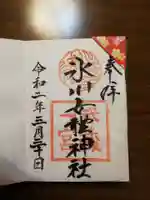 奉拝
氷川女體神社
令和二年三月三十日